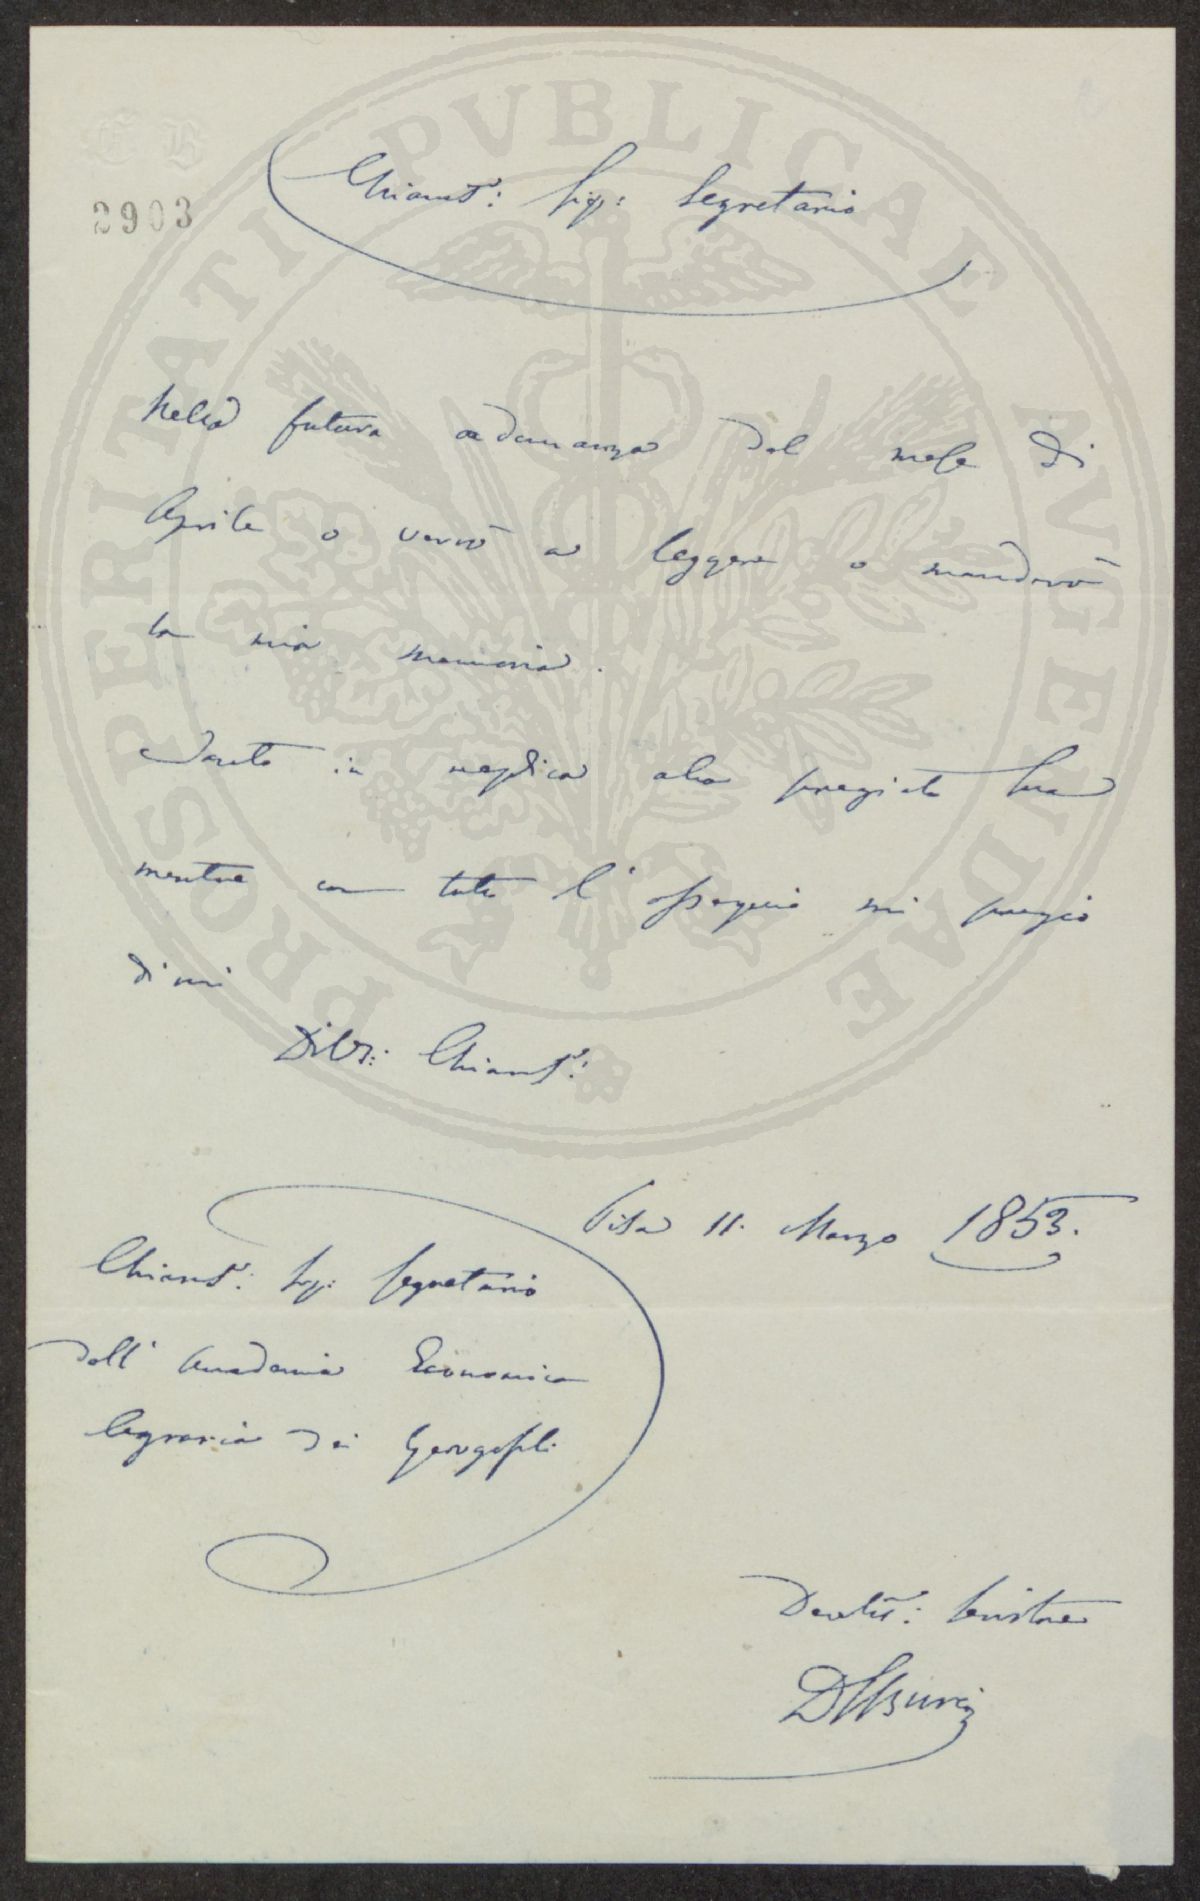 E B
2903
PROSPERITATI PVBLICAE AVGENDAE
Chiaris.: Sig: Segretario
Nella futura adunanza del mese di
Aprile o verrò a leggere o manderò
la mia memoria.
Tanto in replica alla pregiata Sua
mentre con tutto l'ossequio mi pregio
di mi
Chiaris.:
Pisa 11. Marzo 1853.
Chiaris.: Sig: Segretario
dell'Accademia Economica
Agraria dei Georgofili
Devotis.: Servitore